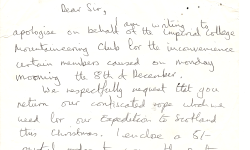 Dear Sir,
I am writing to
apologise on behalf of the Imperial College
Mountaineering Club for the inconvenience
certain members caused on monday
morning the 8th of December.
We respectfully request that you
return our confiscated rope which we
need for our Expedition to Scotland
this Christmas. I enclose a 5/-
postal order to